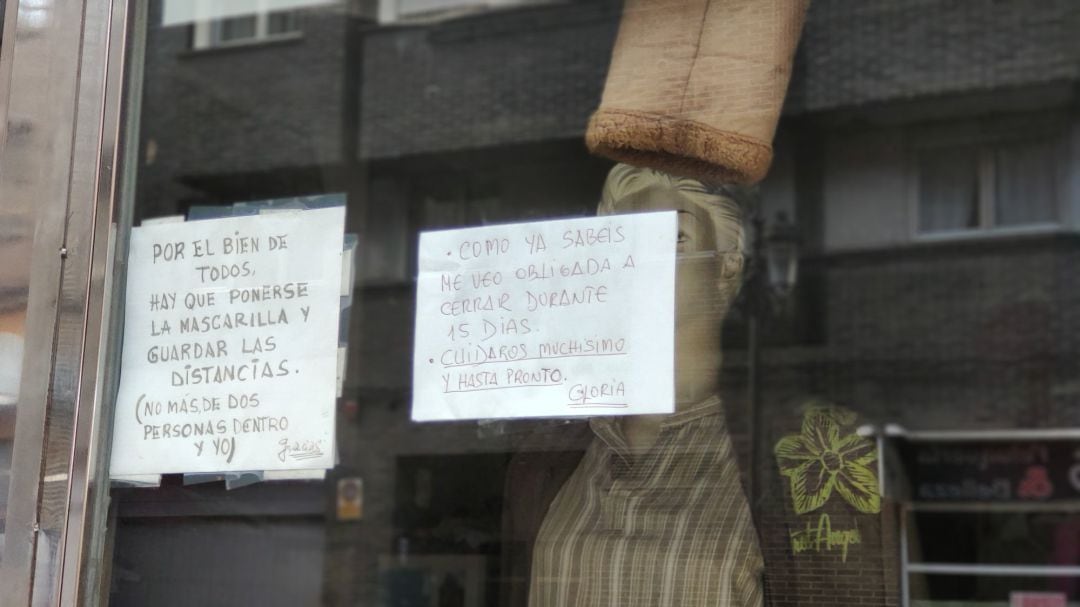 POR EL BIEN DE
TODOS,
HAY QUE PONERSE
LA MASCARILLA Y
GUARDAR LAS
DISTANCIAS.
(NO MÁS, DE DOS
PERSONAS DENTRO
Y YO)
gracias
• COMO YA SABEIS
ME VEO OBLIGADA A
CERRAR DURANTE
15 DÍAS.
• CUIDAROS MUCHISIMO
Y HASTA PRONTO.
GLORIA